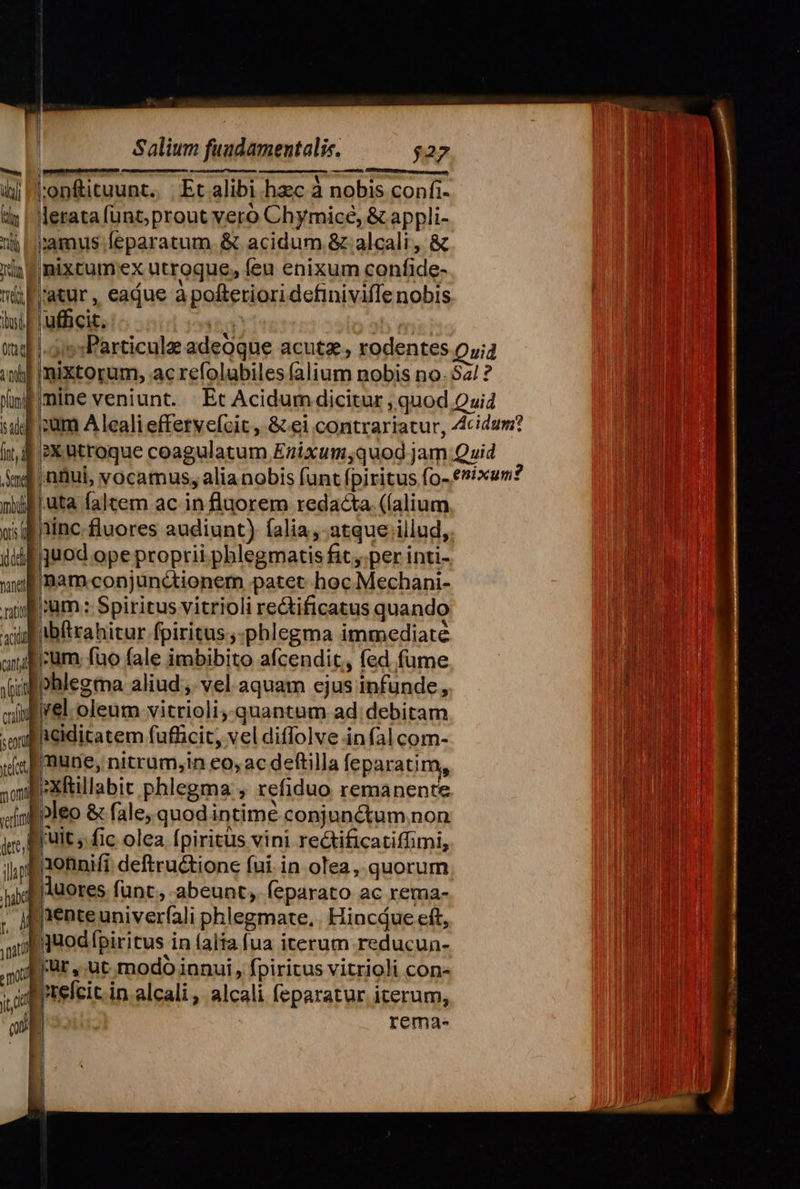 Salium fundamentalis. 527
onſtituunt. Et alibi hæc à nobis conſi-
derata ſunt, prout verò Chymicè, & appli-
camus ſeparatum & acidum & alcali, &
mixtum ex utroque, ſeu enixum conſide-
ratur, eaque à poſteriori definiviſſe nobis
ufficit.
Particulæ adeòque acutæ, rodentes Quid
mixtorum, ac reſolubiles ſalium nobis no- Sal?
mine veniunt. Et Acidum dicitur, quod Quid
cum Alcali efferveſcit, & ei contrariatur, Acidum?
ex utroque coagulatum Enixum, quod jam Quid
innui, vocamus, alia nobis ſunt ſpiritus ſo- enixum?
uta ſaltem ac in fluorem redacta (ſalium
hinc fluores audiunt) ſalia, atque illud,
quod ope proprii phlegmatis fit, per inti-
mam conjunctionem patet hoc Mechani-
cum: Spiritus vitrioli rectificatus quando
abſtrahitur ſpiritus, phlegma immediatè
cum ſuo ſale imbibito aſcendit, ſed ſume
phlegma aliud, vel aquam ejus infunde,
vel oleum vitrioli, quantum ad debitam
aciditatem ſufficit, vel diſſolve in ſal com-
mune, nitrum, in eo, ac deſtilla ſeparatim,
exſtillabit phlegma, reſiduo remanente
oleo & ſale, quod intimè conjunctum non
fuit, ſic olea ſpiritùs vini rectificatiſſimi,
nonniſi deſtructione ſui in olea, quorum
fluores ſunt, abeunt, ſeparato ac rema-
nente univerſali phlegmate. Hincque eſt,
quod ſpiritus in ſalia ſua iterum reducun-
tur, ut modò innui, ſpiritus vitrioli con-
creſcit in alcali, alcali ſeparatur iterum,
rema-